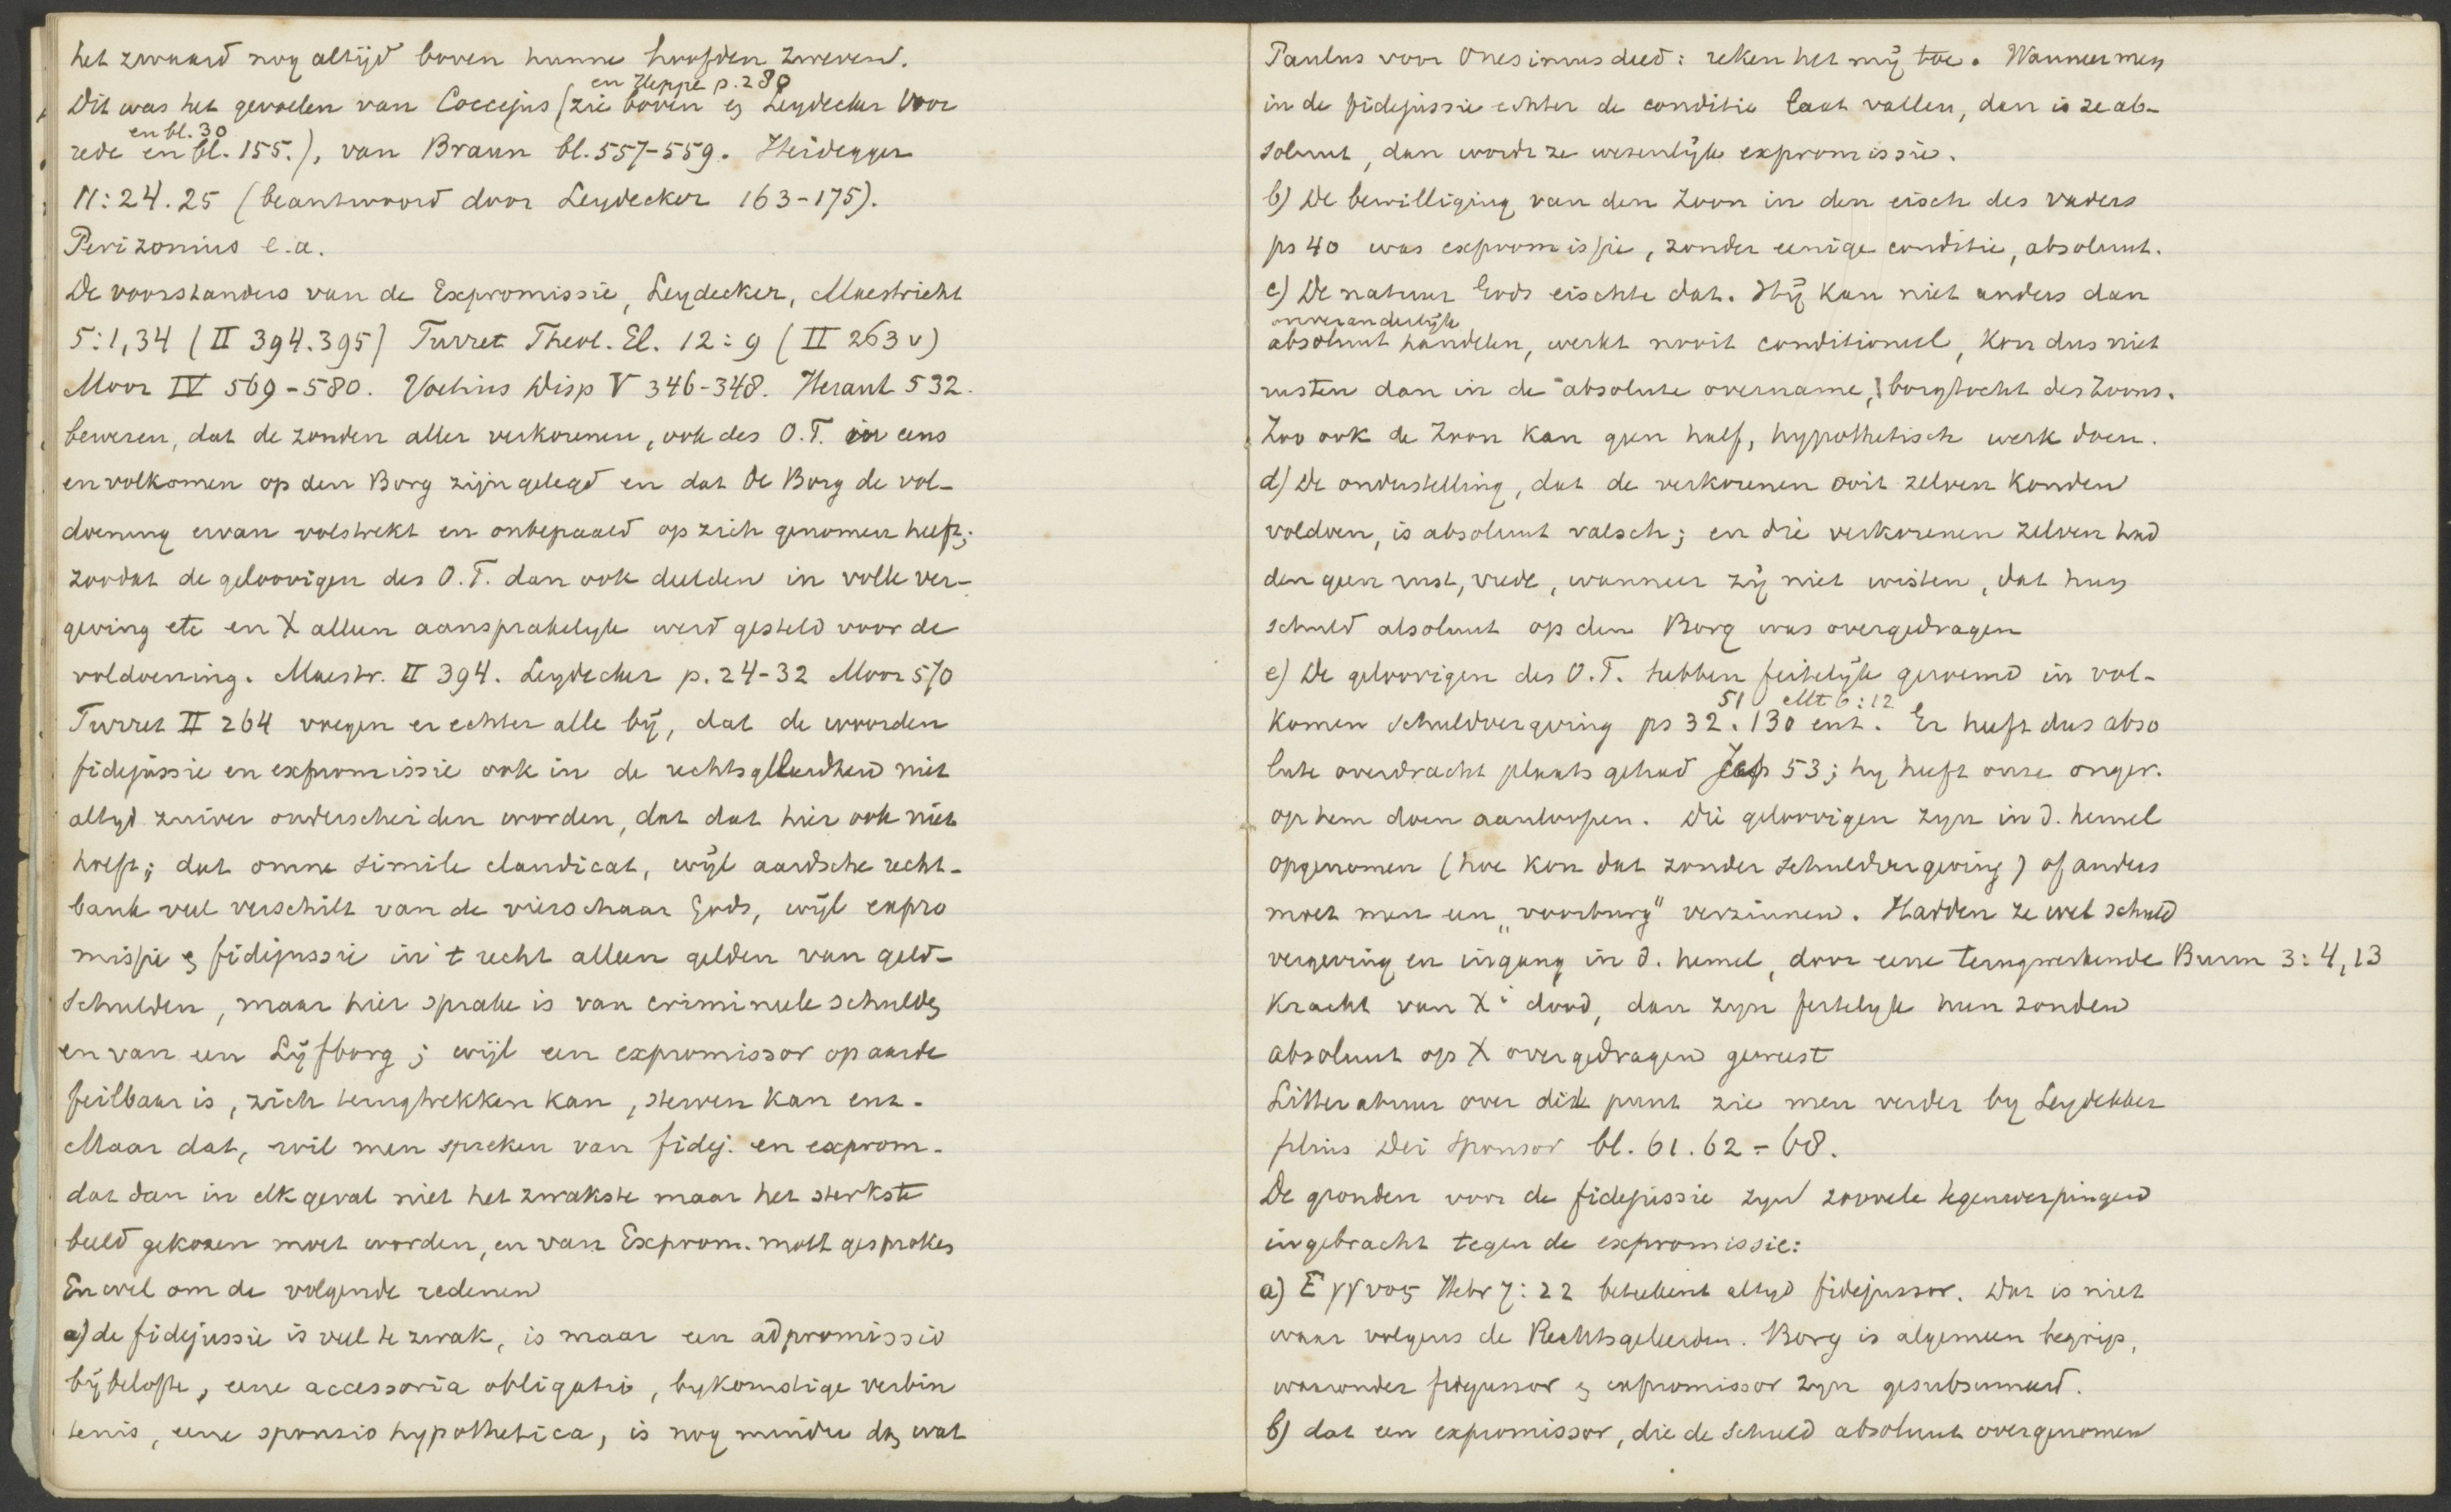 het zwaard nog altijd boven hunne hoofden zweven.
en Heppe p. 280
Dit was het gevoelen van Coccejus (zie boven en Leydecker Voor
en bl. 30
rede en bl. 155.), van Braun bl. 557-559. Heidegger
11:24.25 (beantwoord door Leydecker 163-175).
Perizonius e.a.
De voorstanders van de Expromissie, Leydecker, Maestricht
5:1,34 (II 394.395) Turret Theol. El. 12:9 (II 263 v)
Moor IV 569-580. Voetius Disp V 346-348. Heraut 532.
beweren, dat de zonden aller verkorenen, ook des O.T. in eens
en volkomen op den Borg zijn gelegd en dat de Borg de vol-
doening ervan volstrekt en onbepaald op zich genomen heeft;
zoodat de geloovigen des O.T. dan ook deelden in volle ver-
geving etc en X alleen aansprakelyk werd gesteld voor de
voldoening. Maestr. II 394. Leydecker p. 24-32 Moor 570
Turret II 264 voegen er echter alle bij, dat de woorden
fidejussie en expromissie ook in de rechtsgeleerdheid niet
altyd zuiver onderscheiden worden, dat dat hier ook niet
hoeft; dat omne simile claudicat, wijl aardsche recht-
bank veel verschilt van de vierschaar Gods, wijl expro
missie en fidejussie in 't recht alleen gelden van geld-
schulden, maar hier sprake is van crimineele schulden
en van een Lijfborg; wijl een expromissor op aarde
feilbaar is, zich terugtrekken kan, sterven kan enz.
Maar dat, wil men spreken van fidej. en exprom.
dat dan in elk geval niet het zwakste maar het sterkste
beeld gekozen moet worden, en van Exprom. moet gesproken
En wel om de volgende redenen
a) de fidejussie is veel te zwak, is maar een adpromissio
bijbelofte, eene accessoria obligatio, bykomstige verbin
tenis, eene sponsio hypothetica, is nog minder dan wat
Paulus voor Onesimus deed: reken het mij toe. Wanneer men
in de fidejussie echter de conditie laat vallen, dan is ze ab-
soluut, dan wordt ze wezenlijk expromissie.
b) De bewilliging van den Zoon in den eisch des vaders
ps 40 was expromissie, zonder eenige conditie, absoluut.
c) De natuur Gods eischte dat. Hij kan niet anders dan
onveranderlijk
absoluut handelen, werkt nooit conditioneel, kon dus niet
rusten dan in de absolute overname, borgtocht des Zoons.
Zoo ook de Zoon kan geen half, hypothetisch werk doen.
d) De onderstelling, dat de verkorenen ooit zelven konden
voldoen, is absoluut valsch; en die verkorenen zelven had
den geen rust, vrede, wanneer zij niet wisten, dat hun
schuld absoluut op den Borg was overgedragen
e) De geloovigen des O.T. hebben feitelijk geroemd in vol-
51 Mt 6:12
komen schuldvergeving ps 32. 130 enz. Er heeft dus abso
lute overdracht plaats gehad Jes 53; hy heeft onze onger.
op hem doen aanloopen. Die geloovigen zyn in d. hemel
opgenomen (hoe kon dat zonder schuldvergeving) of anders
moet men een „voorburg" verzinnen. Hadden ze wel schuld
vergeving en ingang in d. hemel, door eene terugwerkende Burm 3:4,13
kracht van Xi dood, dan zyn feitelyk hun zonden
absoluut op X overgedragen geweest
Litteratuur over dit punt zie men verder by Leydekker
filius Dei sponsor bl. 61. 62-68.
De gronden voor de fidejussie zyn zoovele tegenwerpingen
ingebracht tegen de expromissie:
a) Ἐγγυος Hebr 7:22 beteekent altyd fidejussor. Dat is niet
waar volgens de Rechtsgeleerden. Borg is algemeen begrip,
waaronder fidejussor en expromissor zyn gesubsumeerd.
b) dat een expromissor, die de schuld absoluut overgenomen